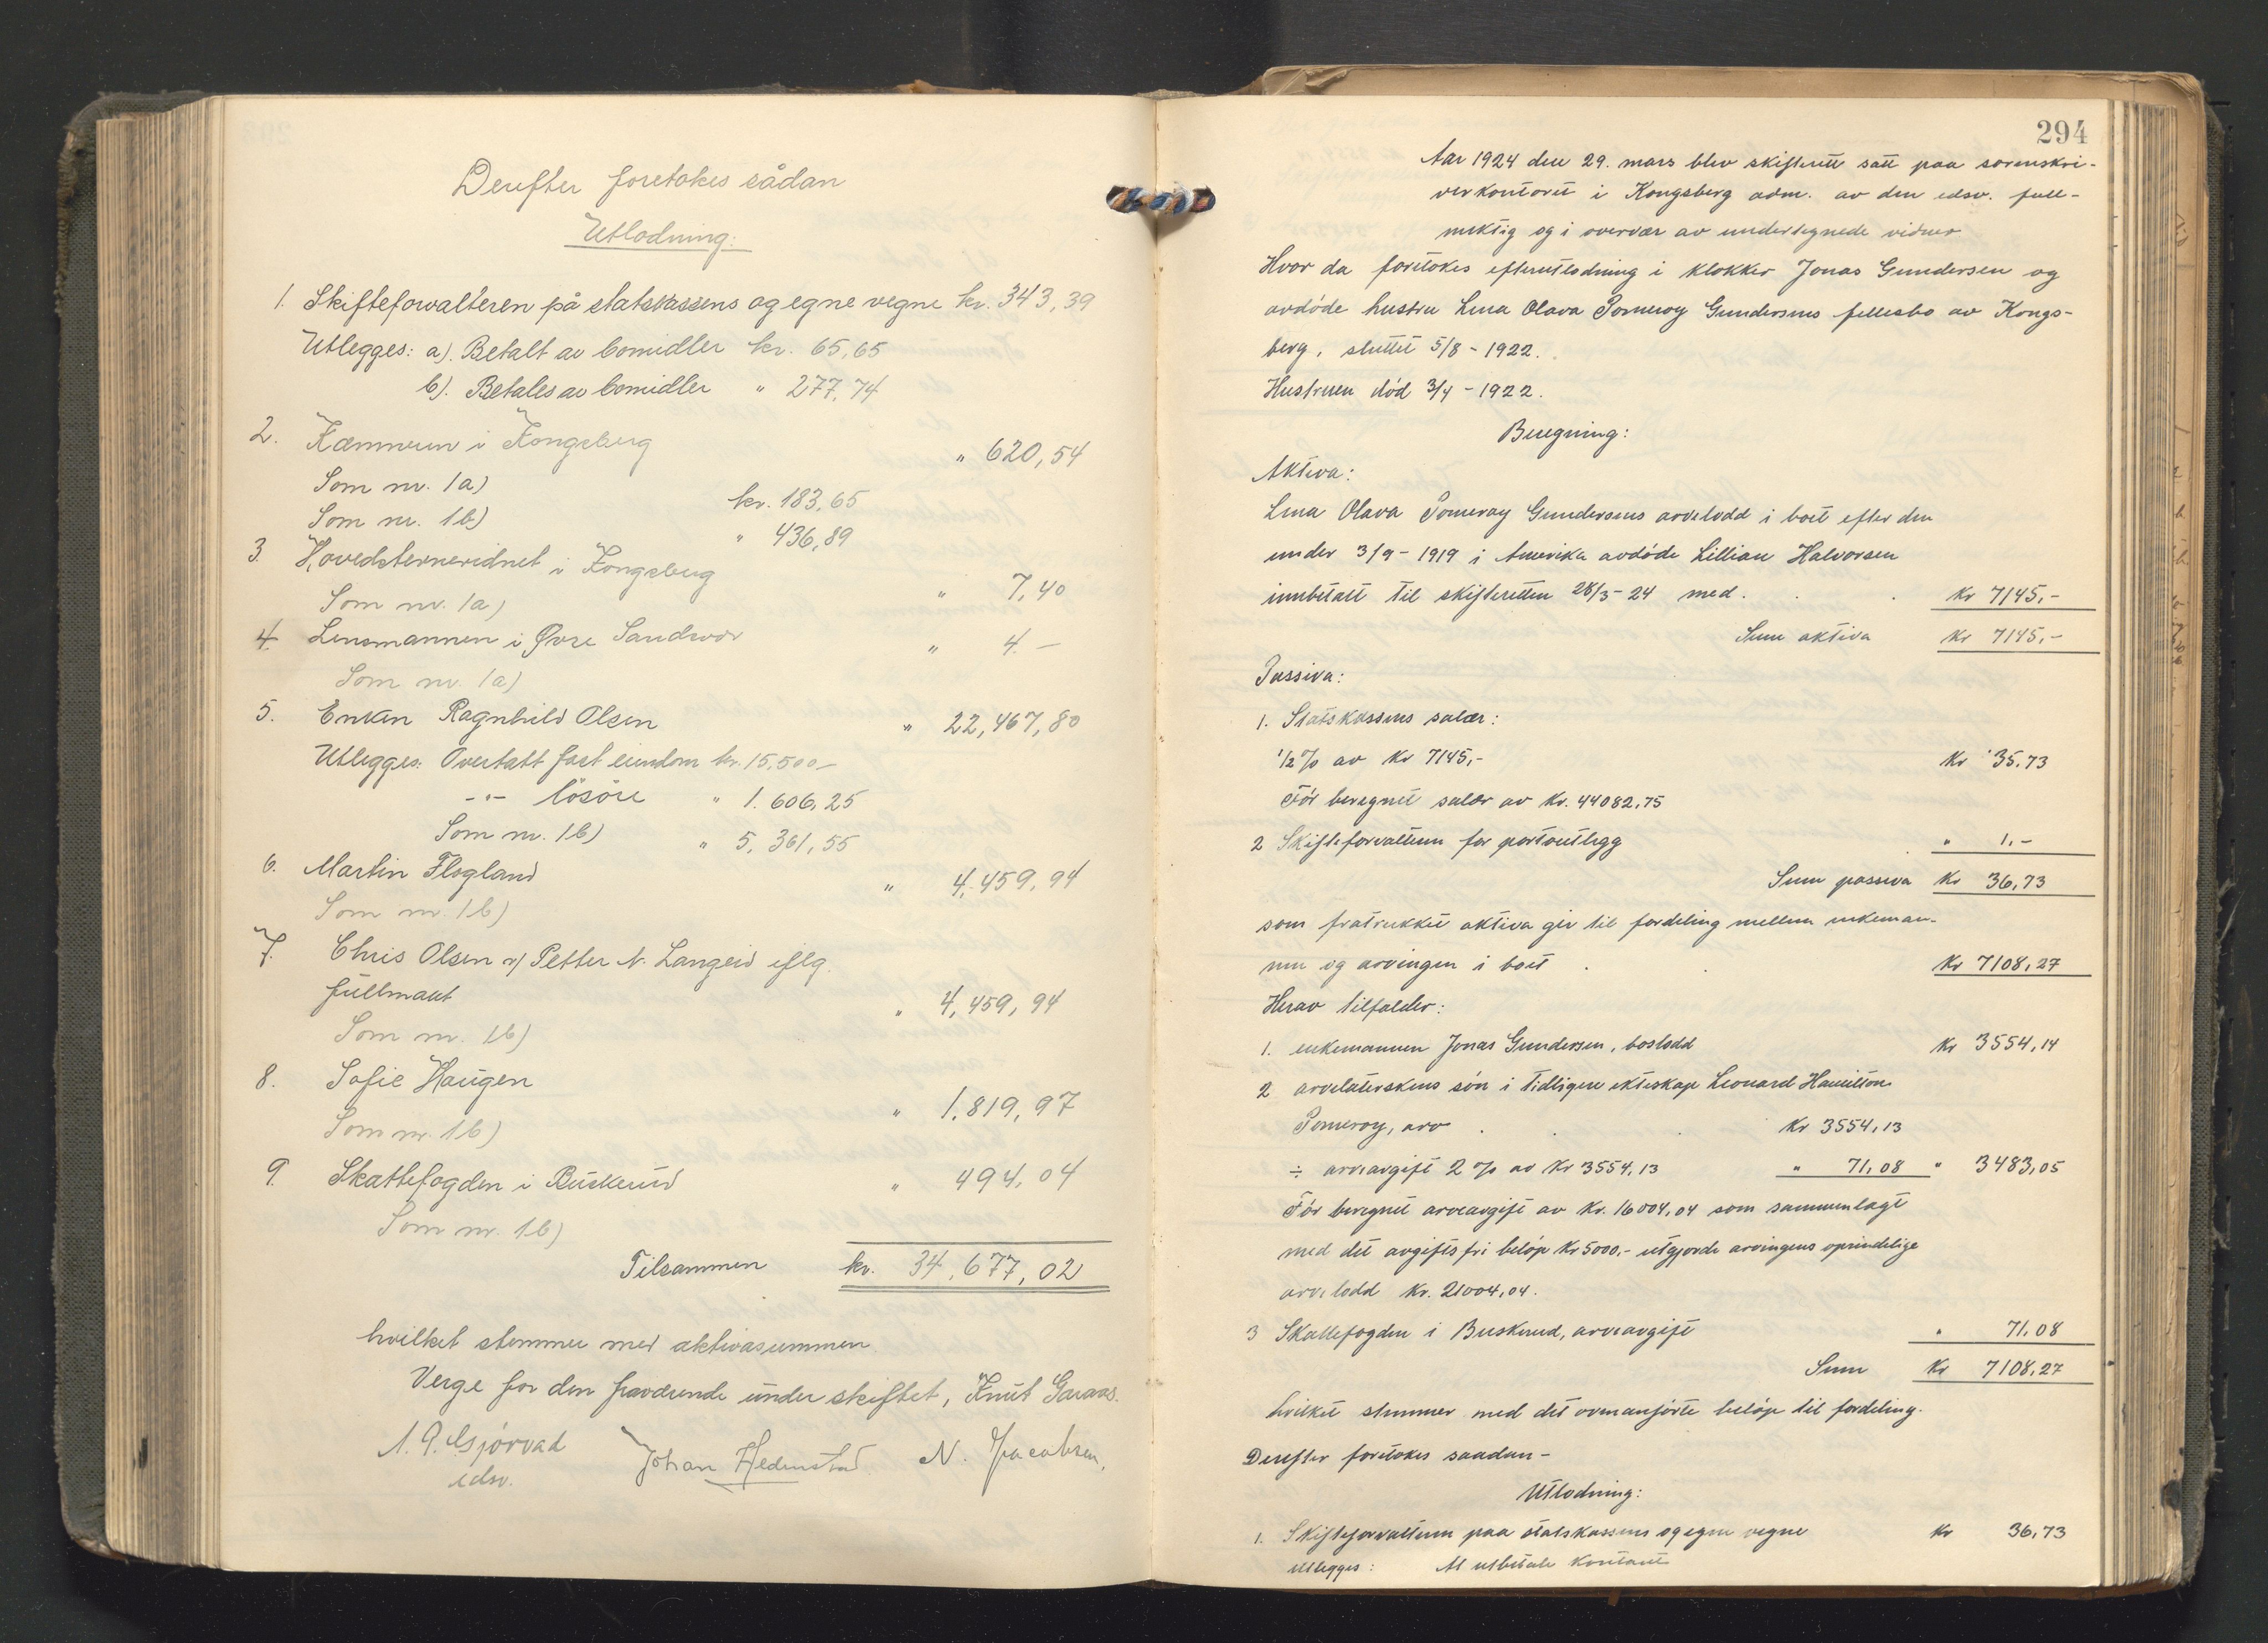 Derefter foretokes sådan
Utlodning:
1. Skifteforvalteren på statskassens og egne vegne kr. 343,39
Utlegges: a). Betalt av bomidler kr. 65,65
b). Betales av bomidler " 277,74
2. Kæmneren i Kongsberg " 620,54
Som nr. 1a) kr. 183,65
Som nr. 1b) " 436,89
3. i Kongsberg " 7,40
Som nr. 1a)
4. Lensmannen i Øvre Sandsvær " 4.-
Som nr. 1a)
5. Enken Ragnhild Olsen " 22,467,80
Utlegges: Overtatt fast eiendom kr. 15,500-
-"- lösöre " 1.606,25
Som nr. 1b) " 5,361,55
6. Martin Flogland " 4,459,94
Som nr. 1b)
7. Chris Olsen v/ Petter N. Langeid iflg.
fullmakt " 4,459,94
Som nr. 1b)
8. Sofie Haugen " 1,819,97
Som nr. 1b)
9. Skattefogden i Buskerud " 494,04
Som nr. 1b)
Tilsammen kr. 34,677,02
hvilket stemmer med aktivasummen.
Verge for den fraværende under skiftet, Knut Garaas.
Johan Hedenstad N. Jacobsen,
edsv.
294
Aar 1924 den 29. mars blev skifterett satt paa sorenskri-
verkontoret i Kongsberg adm. av den edsv. full-
mektig og i overvær av undertegnede vidner
Hvor da foretokes efterutlodning i klokker Jonas Gundersen og
avdöde hustru Lina Olava Pomeroy Gundersens fellesbo av Kongs-
berg, sluttet 5/8 - 1922.
Hustruen död 3/4 - 1922.
Beregning:
Aktiva:
Lina Olava Pomeroy Gundersens arvelodd i boet efter den
under 3/9 - 1919 i Amerika avdöde Lillian Halvorsen
innbetalt til skifteretten 28/3 - 24 med . . kr 7145,-
Sum aktiva kr 7145,-
Passiva:
1. Statskassens salær:
1/2 % av kr 7145,- kr 35,73
För beregnet salær av kr. 44082,75
2 Skifteforvalteren for portoutlegg " 1,-
Sum passiva kr 36,73
som fratrukket aktiva gir til fordeling mellem enkeman-
nen og arvingen i boet . . kr 7108,27
Herav tilfalder:
1. enkemannen Jonas Gundersen, boslodd kr 3554,14
2 arvelaterskens sön i tidligere ekteskap Leonard Hamilton
Pomeroy, arv . . . kr 3554,13
÷ arveavgift 2 % av kr 3554,13 " 71,08 " 3483,05
För beregnet arveavgift av kr. 16004,04 som sammenlagt
med det avgiftsfri belöp kr 5000.- utgjorde arvingens oprindelige
arvelodd kr. 21004,04.
3 Skattefogden i Buskerud, arveavgift " 71,08
Sum kr 7108,27
hvilket stemmer med det ovenanförte belöp til fordeling.
Derefter foretokes saadan -
Utlodning:
1. Skifteforvalteren paa statskassens og egne vegne kr 36,73
utlegges: At utbetale kontant